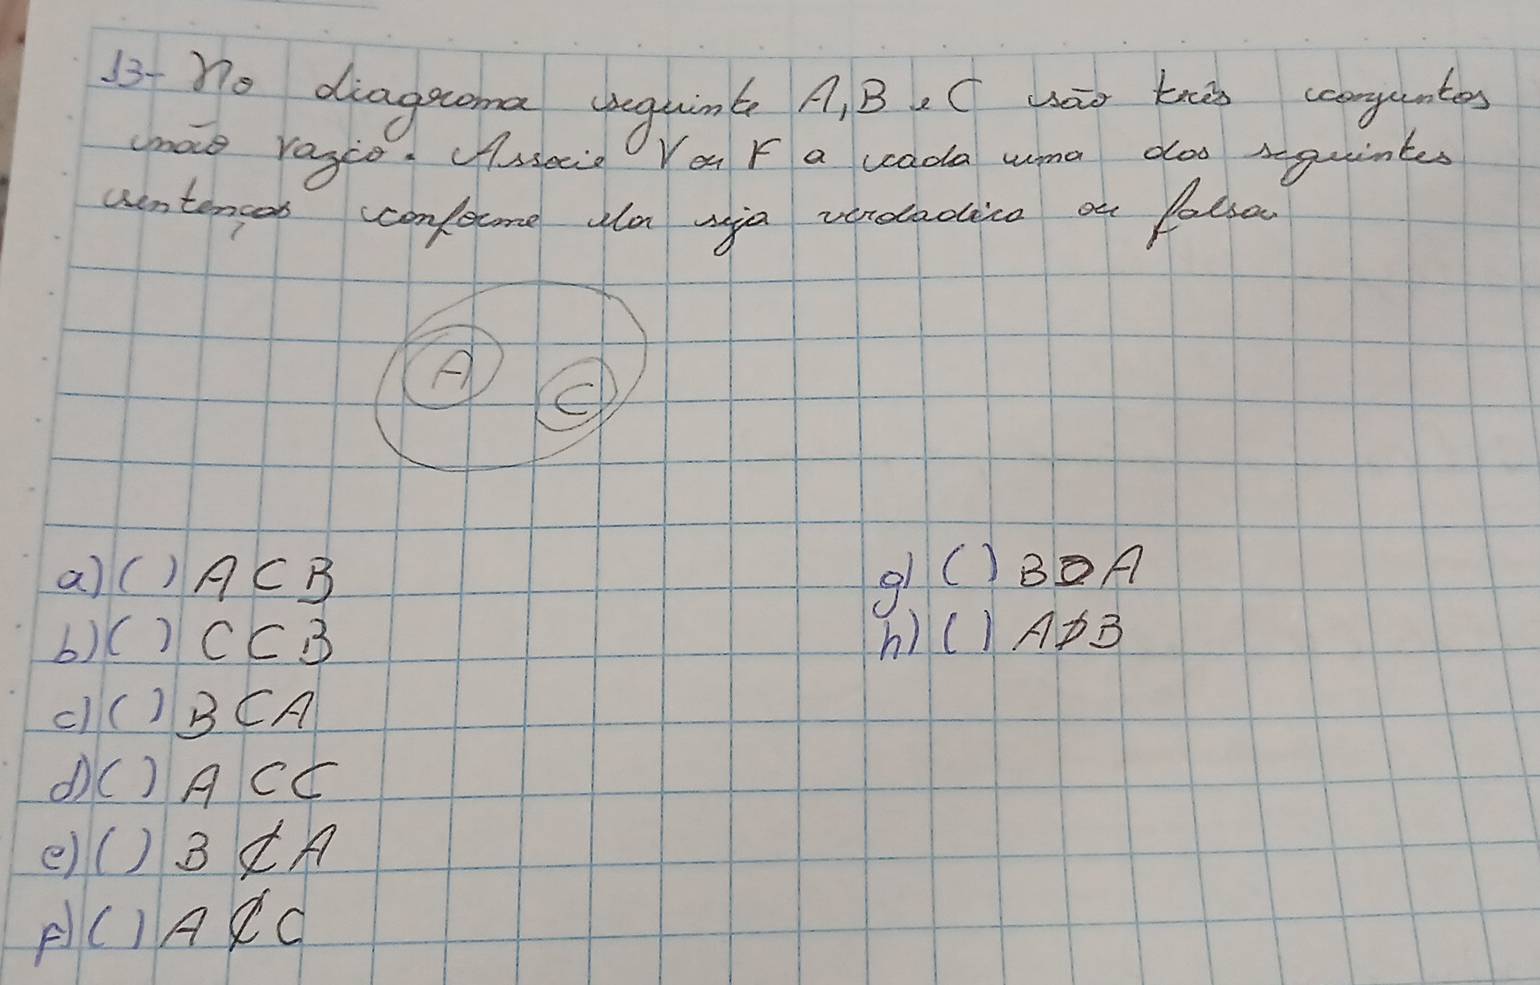 13- No diagrama seguinte A, B e C são três conjuntos
não vazio. Associe V ou F a cada uma das seguintes
sentenças conforme ela seja verdadeira ou falsa
A
C
a) ( ) A ⊂ B
b) ( ) C ⊂ B
c) ( ) B ⊂ A
d) ( ) A ⊂ C
e) ( ) B ⊄ A
f) ( ) A ⊄ C
g) ( ) B ⊃ A
h) ( ) A ⊅ B